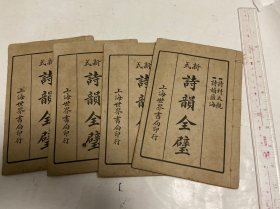 新式
詩韻全璧
上海世界書局印行
新式
詩韻全璧
上海世界書局印行
新式
詩韻全璧
上海世界書局印行
新式
詩韻全璧
上海世界書局印行